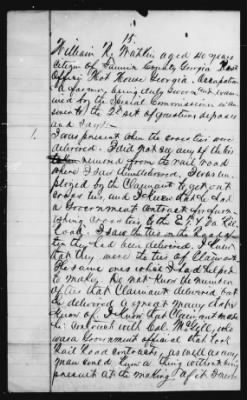 15.
William R. Watkin aged 40 years
Citizen of Fannin County Georgia Post
Office; Hot House Georgia. Occupation
a farmer, being duly sworn and exam-
ined by the Special Commissioner in
answer to the 2d set of questions deposes
and Says:
1. I was present when the cross ties were
delivered. I did not see any of the ties
removed from the rail road
where I saw them delivered. I was em-
ployed by the Claimant to get out
cross ties, and I knew that he had
a Government Contract for furn-
ishing cross ties to the E. T. & Ga. Rail
Road. I saw the ties on the road
they had been delivered. I knew
that they were the ties of Claimant
the same ones which I had helped
to make. I do not know the number
of ties that Claimant delivered but
he delivered a great many that I
know of. I know that Claimant made
the contract with Col. McGill, who
was a Government official that took
Rail Road contracts, as well as any
man could know a thing without being
present at the making of it